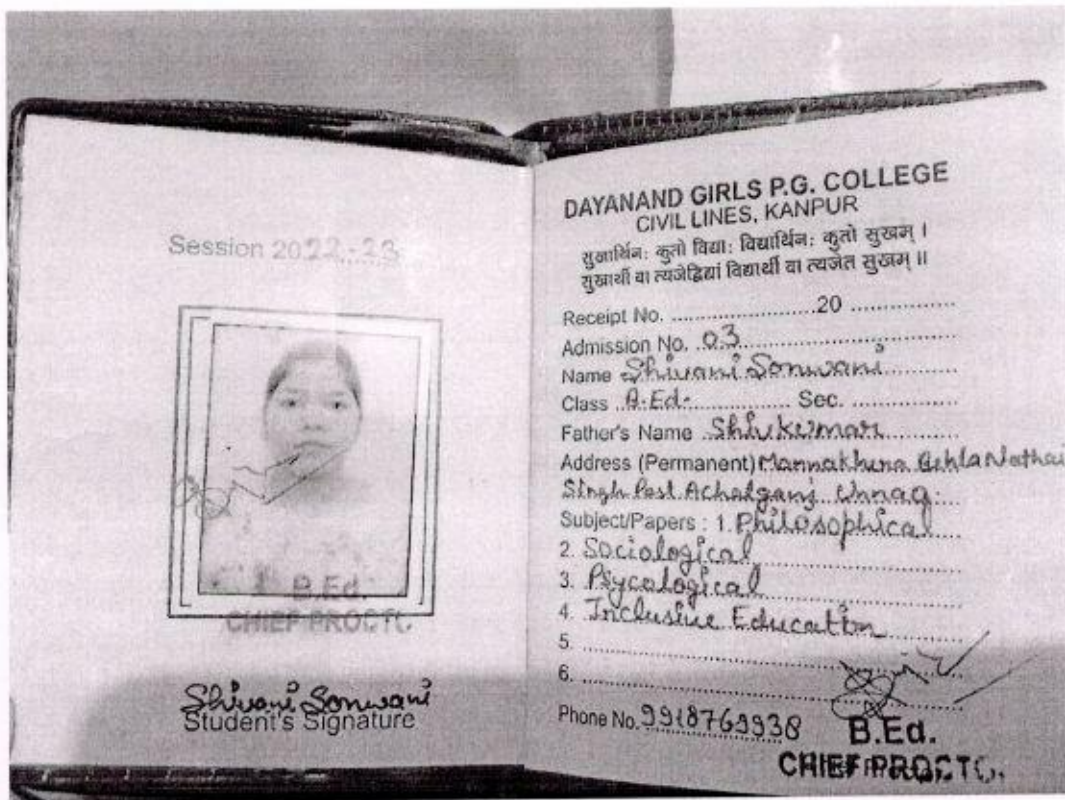 Session 2022-23
B.Ed.
CHIEF PROCTO
Shivani Sonwani
Student's Signature
DAYANAND GIRLS P.G. COLLEGE
CIVIL LINES, KANPUR
सुखार्थिनः कुतो विद्याः विद्यार्थिनः कुतो सुखम् ।
सुखार्थी वा त्यजेद्विद्यां विद्यार्थी वा त्यजेत सुखम् ॥
Receipt No. ........................20 ..................
Admission No. 03
Name Shivani Sonwani
Class B.Ed. Sec. ..................
Father's Name Shivkumar
Address (Permanent) Mannakhera
Singh Post Achalganj Unnao.
Subject/Papers : 1. Philosophical
2. Sociological
3. Psycological
4. Inclusive Education
5.
6.
Phone No. 9918769938
B.Ed.
CHIEF PROCTO